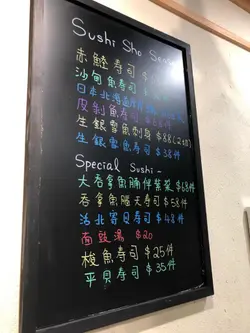 Sushi Sho Se
赤鯥寿司 $
沙甸魚寿司 $
日本北海道
皮剥魚寿司 $
生銀雪魚刺身 $88(2
生銀雪魚寿司 $38件
Special Sushi -
大吞拿魚腩伴葉菜 $68件
吞拿魚腦天寿司 $58件
活北寄貝寿司 $48件
面豉湯 $20
梭魚寿司 $25件
平貝寿司 $35件